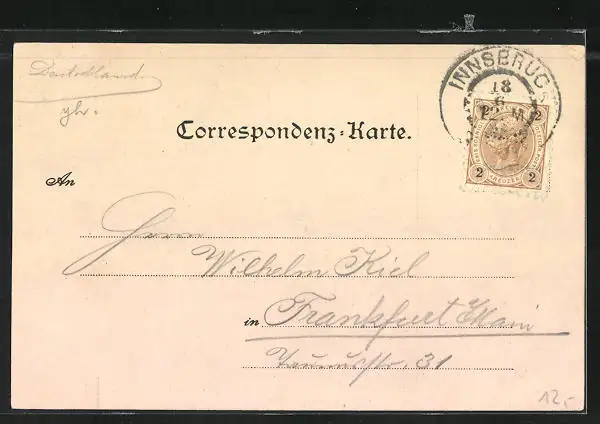 Deutschland
INNSBRUCK
18
6
2 2
KREUZER
Correspondenz-Karte.
An
Herrn
Wilhelm Kiel
in Frankfurt a/Main
31
12,-